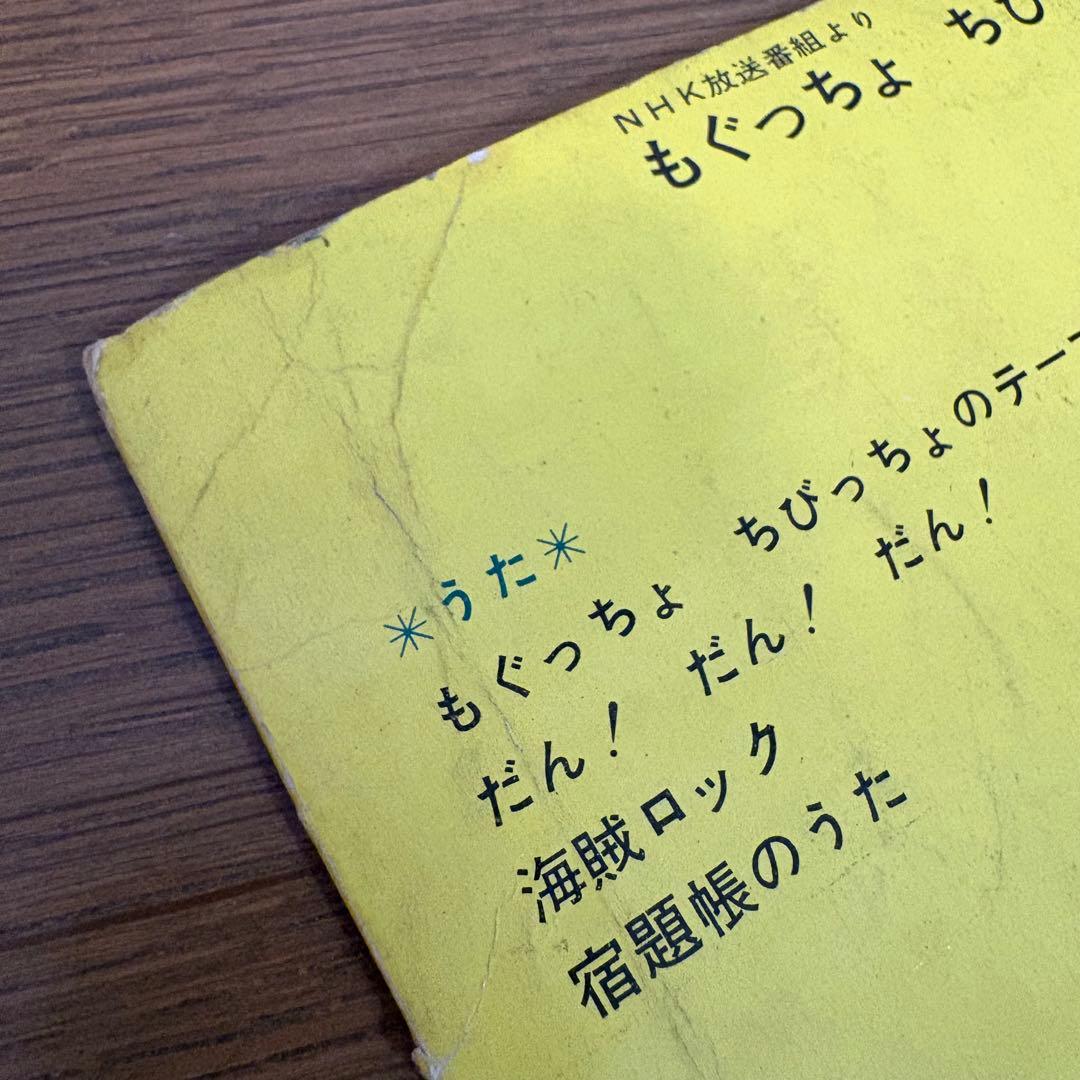 NHK放送番組より
もぐっちょ　ちび
＊うた＊
もぐっちょ　ちびっちょのテー
だん！　だん！　だん！
海賊ロック
宿題帳のうた